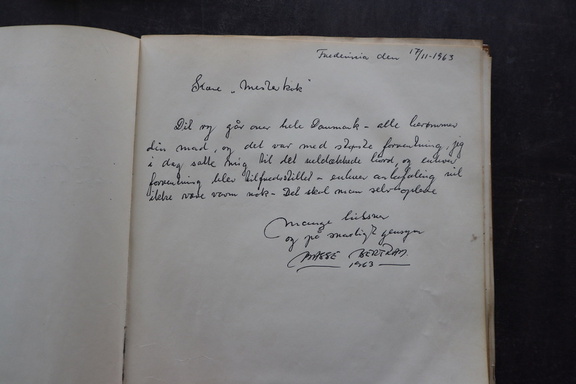 Fredericia den 17/11-1963
Kære "Mesterkok"
Dit ry går over hele Danmark - alle berømmer
din mad, og det var med største forventning, jeg
i dag satte mig til det veldækkede bord, og enhver
forventning blev tilfredsstillet - enhver anbefaling vil
ikke være varm nok - Det skal man selv opleve
Mange hilsner
og på snarligt gensyn
BASSE BERTRAM
1963